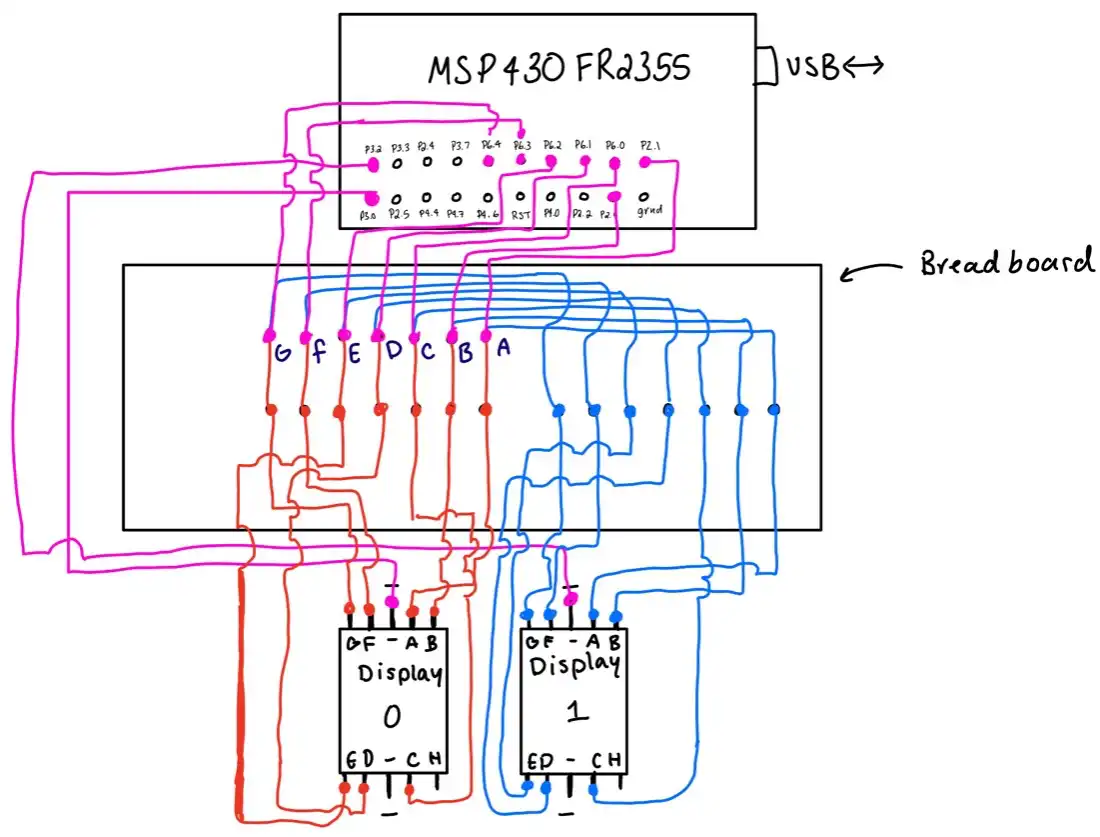 MSP430FR2355
USB
P3.2 P3.3 P2.4 P3.7 P6.4 P6.3 P6.2 P6.1 P6.0 P2.1
P3.0 P2.5 P4.4 P4.7 P4.6 RST P4.0 P2.2 grnd
Breadboard
G F E D C B A
G F - A B
Display
0
E D - C H
G F - A B
Display
1
E D - C H